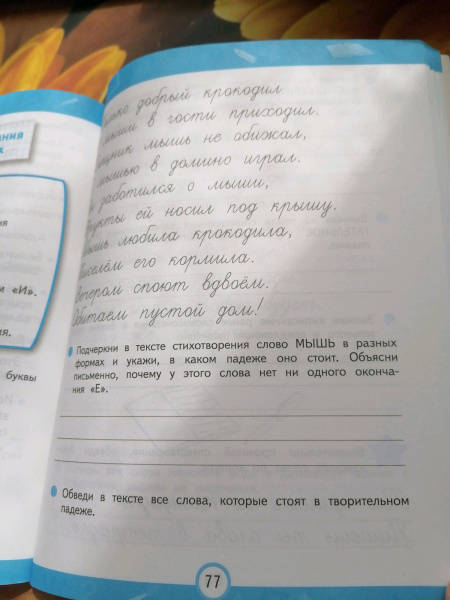 добрый крокодил
в гости приходил.
мышь не обижал,
мышью в домино играл.
заботился о мыши,
ей носил под крышу.
любила крокодила,
его кормила.
споют вдвоём.
пустой дом!
Подчеркни в тексте стихотворения слово МЫШЬ в разных
формах и укажи, в каком падеже оно стоит. Объясни
письменно, почему у этого слова нет ни одного оконча-
ния «Е».
Обведи в тексте все слова, которые стоят в творительном
падеже.
77
и «И».
буквы